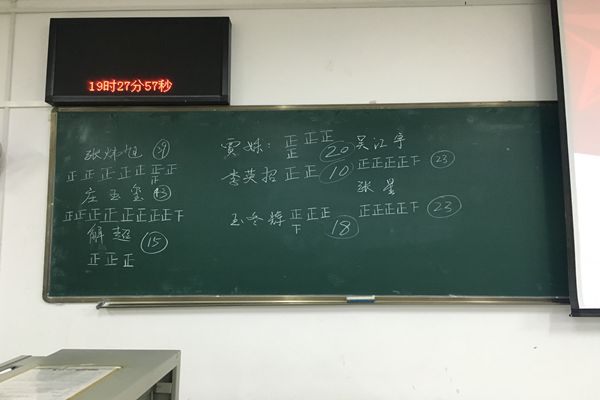 19时27分57秒
张炜旭
正正正正正正正
正
庄玉玺 43
正正正正正正正正下
解超 15
正正正
贾姝: 正正正
正 20
李英招 正正 10
正正正
下 18
吴江宇
正正正正下 23
张星
正正正正下 23